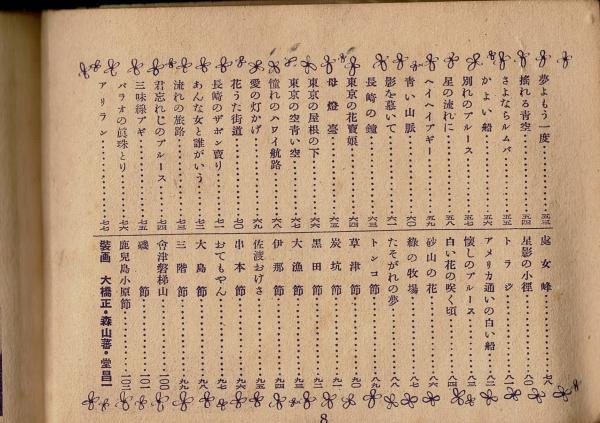 夢よもう一度………五三
搖れる青空………五四
さよならルムバ………五五
かよい船………五六
別れのブルース………五七
星の流れに………五八
ヘイヘイブギー………五九
青い山脈………六〇
影を慕いて………六一
長崎の鐘………六三
東京の花賣娘………六四
母燈臺………六五
東京の屋根の下………六六
東京の空青い空………六七
憧れのハワイ航路………六八
愛の灯かげ………六九
花うた街道………七〇
長崎のザボン賣り………七一
あんな女と誰がいう………七二
流れの旅路………七三
君忘れじのブルース………七四
三味線ブギ………七五
パラオの眞珠とり………七六
アリラン………七七
處女峰………七八
星影の小徑………八〇
トラジ………八一
アメリカ通いの白い船………八二
懷しのブルース………八三
白い花の咲く頃………八四
砂山の花………八六
綠の牧場………八七
たそがれの夢………八八
トンコ節………八九
草津節………九〇
炭坑節………九一
黒田節………九二
大漁節………九三
伊那節………九四
佐渡おけさ………九五
串本節………九六
おてもやん………九七
大島節………九八
三階節………九九
會津磐梯山………一〇〇
磯節………一〇一
鹿兒島小原節………一〇二
裝画　大橋正・森山蕃・堂昌一
8